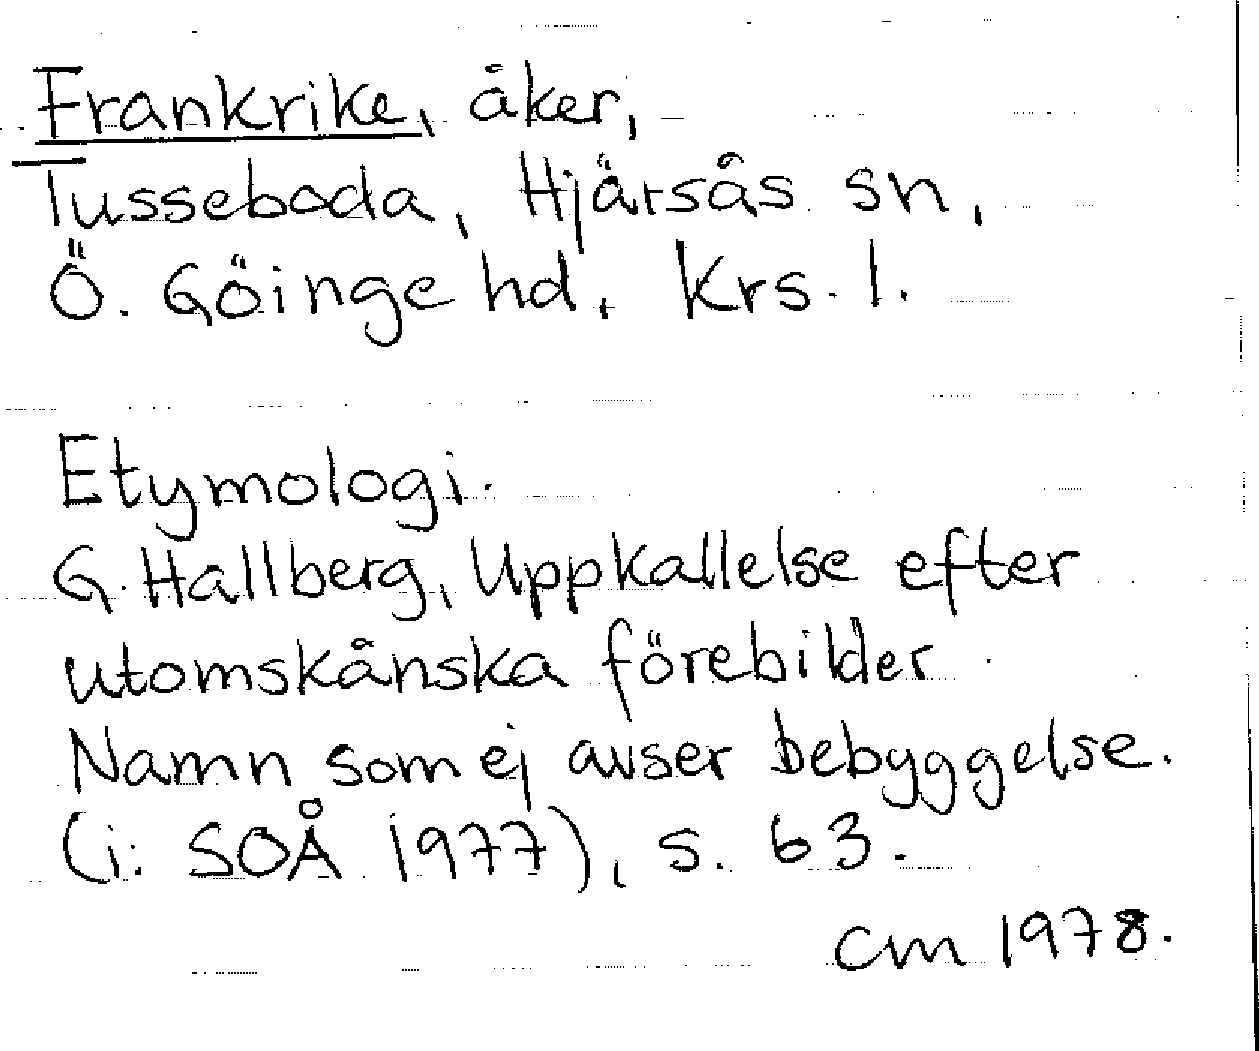 Frankrike, åker,
Tusseboda, Hjärsås sn,
Ö. Göinge hd, Krs. l.
Etymologi.
G. Hallberg, Uppkallelse efter
utomskånska förebilder.
Namn som ej avser bebyggelse.
(i: SOÅ 1977), s. 63.
cm 1978.